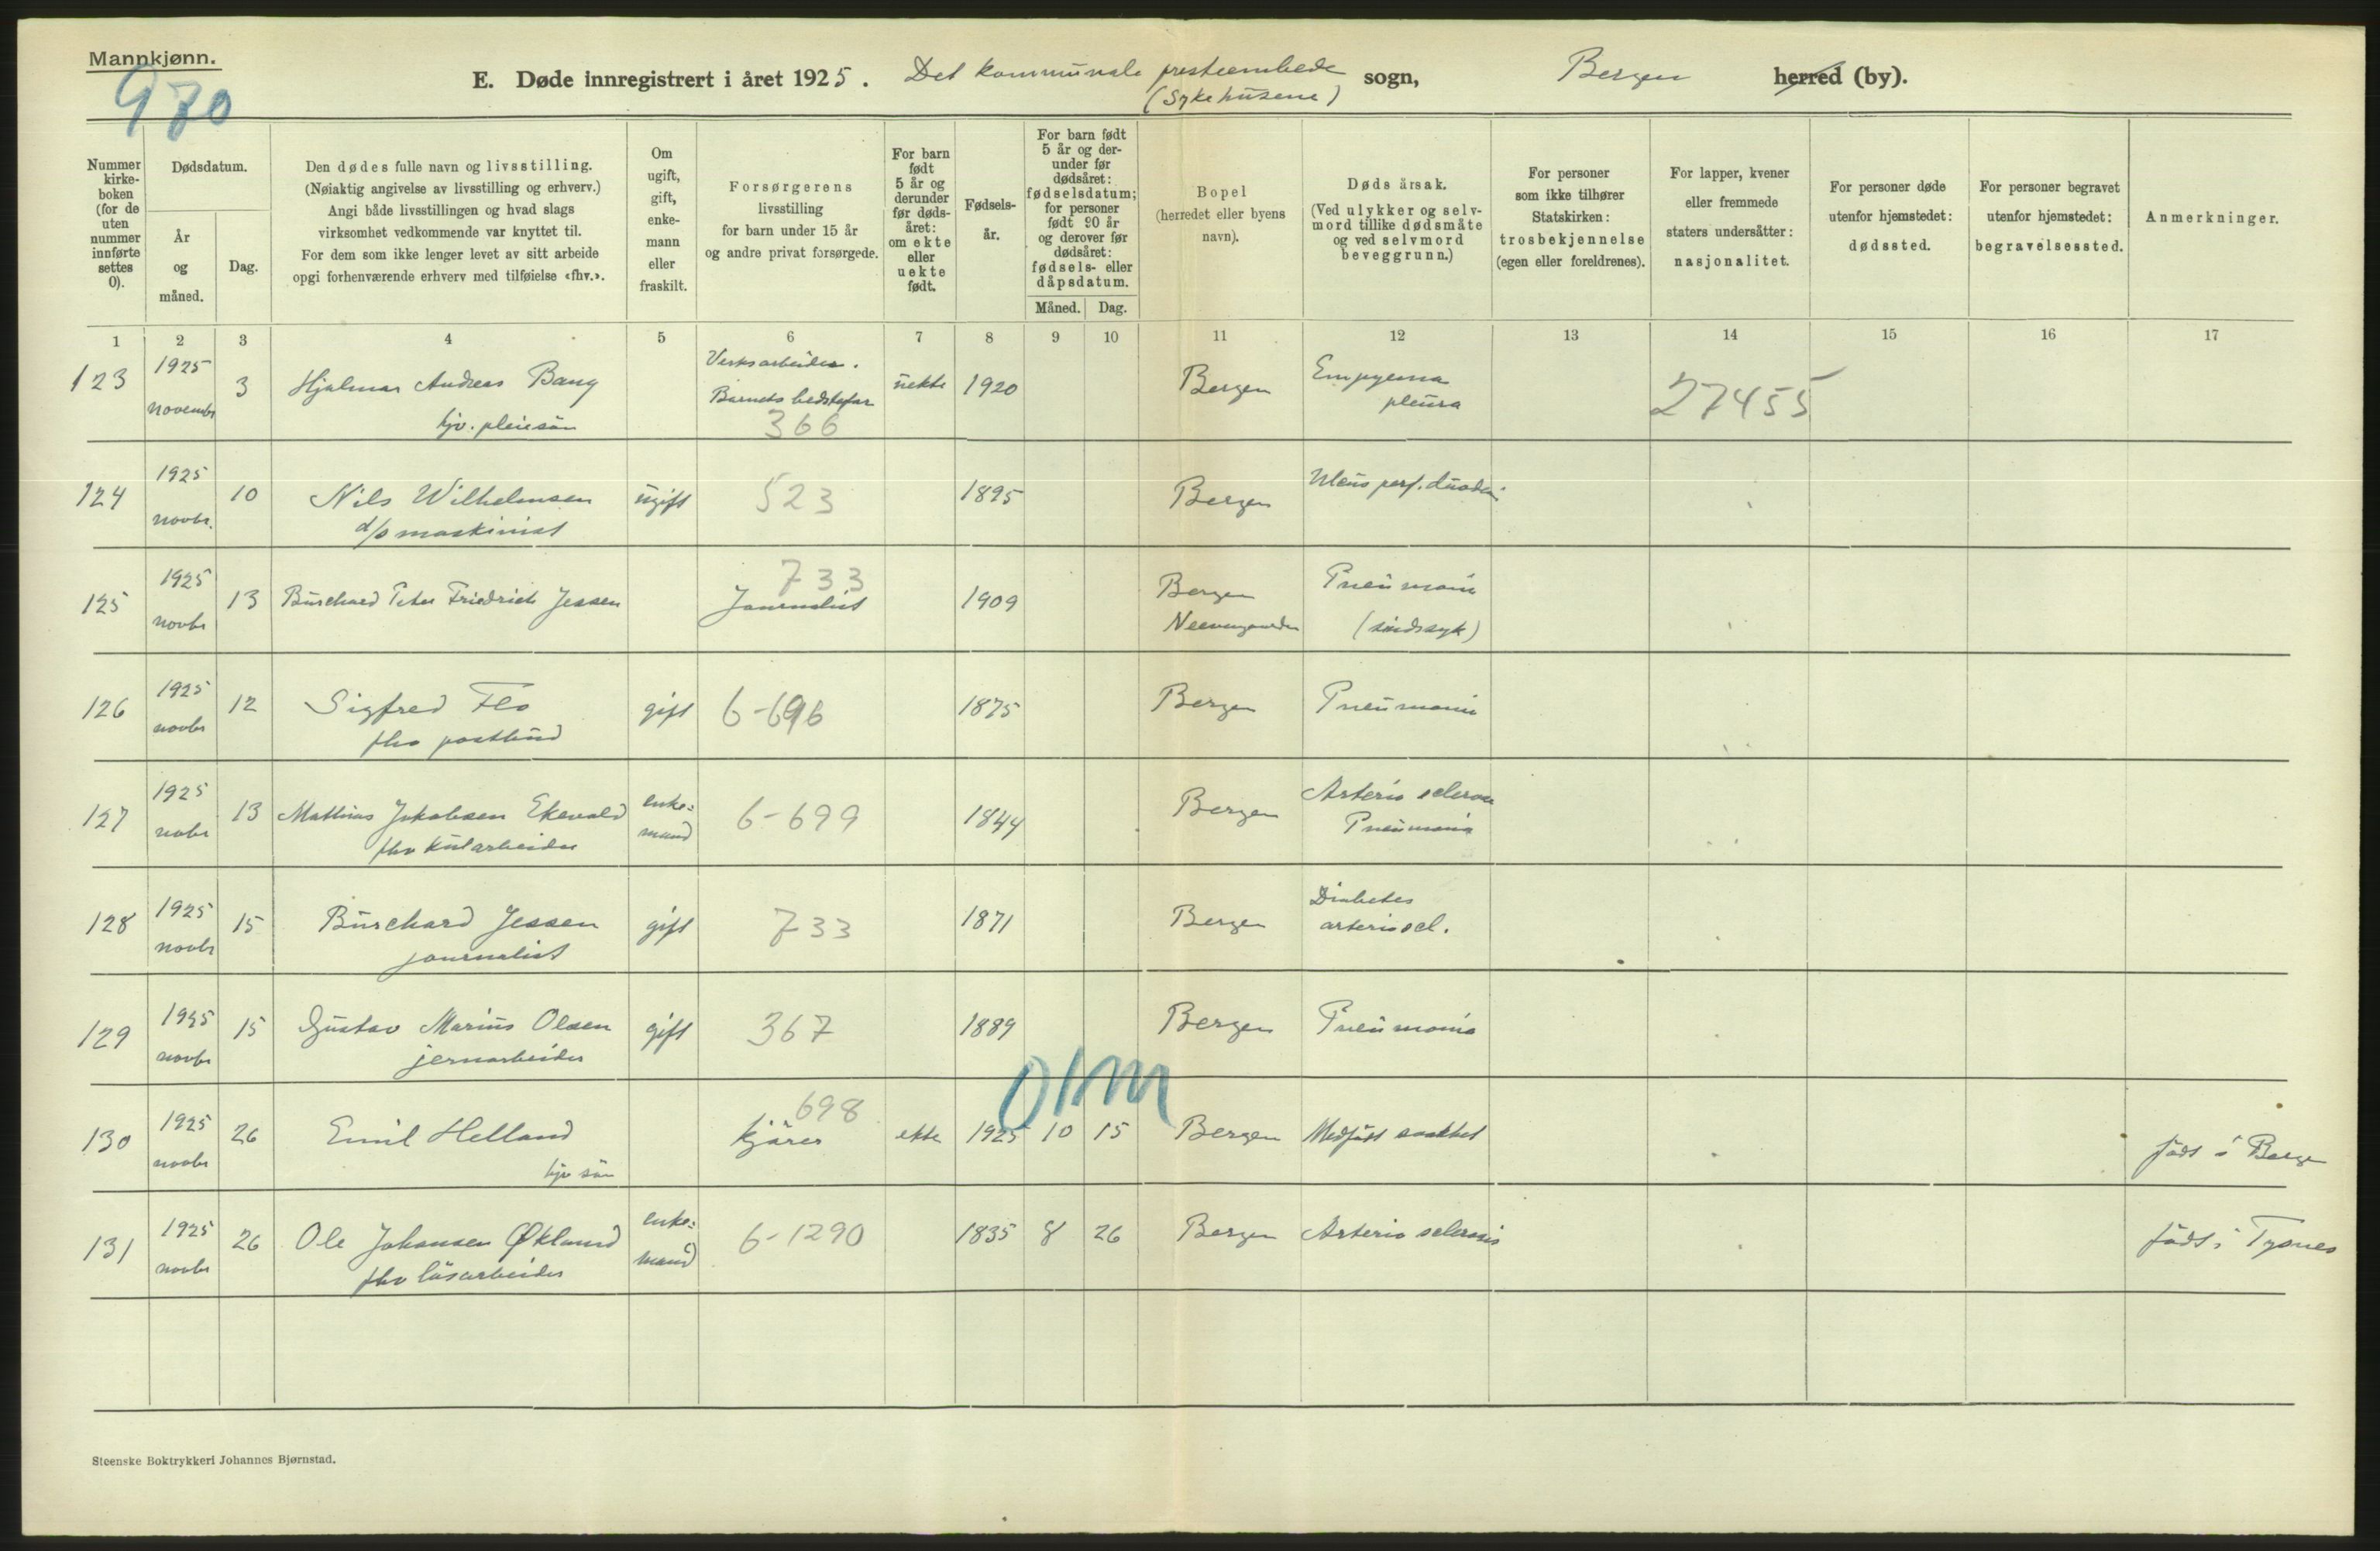 Mannkjønn.
970
E. Døde innregistrert i året 1925. Det kommunale presteembede sogn, Bergen herred (by).
(Sykehusene)
Nummer kirke-boken (for de uten nummer innførte settes 0).
Dødsdatum.
År og måned.
Dag.
Den dødes fulle navn og livsstilling.
(Nøiaktig angivelse av livsstilling og erhverv.)
Angi både livsstillingen og hvad slags
virksomhet vedkommende var knyttet til.
For dem som ikke lenger levet av sitt arbeide
opgi forhenværende erhverv med tilføielse «fhv.».
Om ugift, gift, enke-mann eller fraskilt.
Forsørgerens
livsstilling
for barn under 15 år
og andre privat forsørgede.
For barn født 5 år og derunder før døds-året: om ekte eller uekte født.
Fødsels-år.
For barn født 5 år og der-under før dødsåret: fødselsdatum; for personer født 90 år og derover før dødsåret: fødsels- eller dåpsdatum.
Måned. Dag.
Bopel
(herredet eller byens
navn).
Døds årsak.
(Ved ulykker og selv-
mord tillike dødsmåte
og ved selvmord
beveggrunn.)
For personer
som ikke tilhører
Statskirken:
trosbekjennelse
(egen eller foreldrenes).
For lapper, kvener
eller fremmede
staters undersåtter:
nasjonalitet.
For personer døde
utenfor hjemstedet:
dødssted.
For personer begravet
utenfor hjemstedet:
begravelsessted.
Anmerkninger.
1 2 3 4 5 6 7 8 9 10 11 12 13 14 15 16 17
123 1925 november 3 Hjalmar Andreas Bang
hjv. pleiesön
Verksarbeider.
Barnets bedstefar
366
uekte 1920 Bergen Empyema
pleura
27455
124 1925 novbr. 10 Nils Wilhelmsen
d/s maskinist
ugift 523 1895 Bergen Ulcus perf. duodeni
125 1925 novbr 13 Burchard Peter Friedrich Jessen
733
Journalist
1909 Bergen
Neevengaarden
Pneumoni
(sindssyk)
126 1925 novbr 12 Sigfred Flo
fhv postbud
gift 6-696 1875 Bergen Pneumoni
127 1925 novbr 13 Mathias Jakobsen Ekevald
fhv kularbeider
enke=
mand
6-699 1844 Bergen Arterio sclerose
Pneumonia
128 1925 novbr 15 Burchard Jessen
journalist
gift 733 1871 Bergen Diabetes
arterioscl.
129 1925 novbr 15 Gustav Marius Olsen
jernarbeider
gift 367 1889 Bergen Pneumonia
01m
130 1925 novbr 26 Emil Helland
hjv sön
698
kjörer
ekte 1925 10 15 Bergen Medfödt svakhet
född i Bergen
131 1925 novbr 26 Ole Johansen Økland
fhv lösarbeider
enke=
mand
6-1290 1835 8 26 Bergen Arterio sclerosis
född i Tysnes
Steenske Boktrykkeri Johannes Bjørnstad.